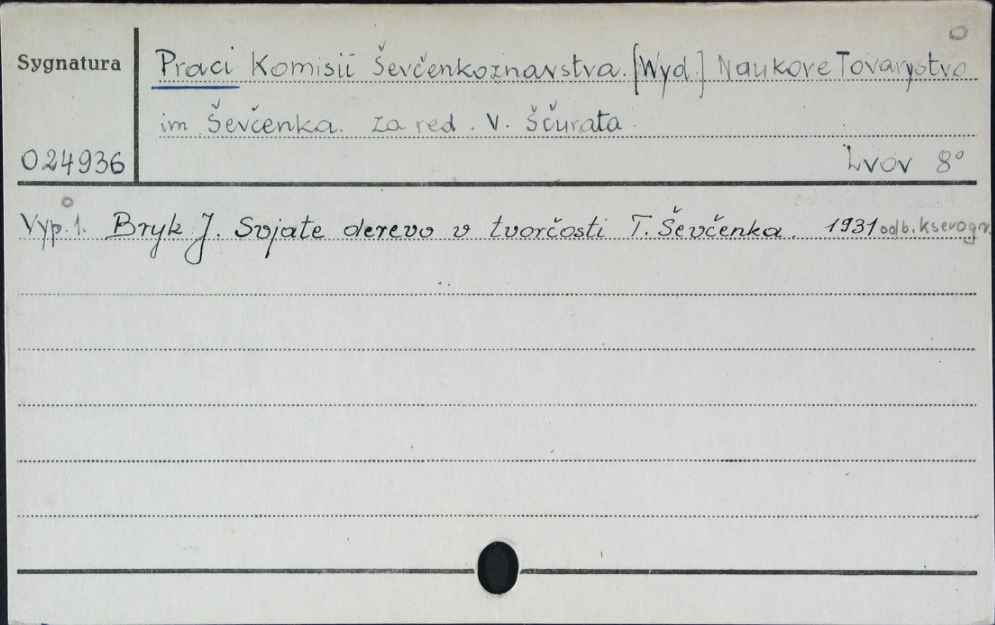 Sygnatura
Praci Komisiï Ševčenkoznavstva. [Wyd.] Naukove Tovarystvo
im. Ševčenka. za red. V. Ščurata.
024936
Lvov 8°
Vyp. 1. Bryk J. Svjate derevo v tvorčosti T. Ševčenka. 1931 odb. kserogr.